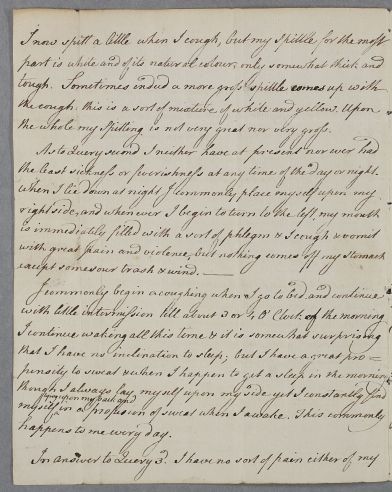 I now spitt a little when I cough, but my Spittle for the most
part is white and of its natural colour, only somewhat thick and
tough. Sometimes indeed a more gross spittle comes up with
the cough. this is a sort of mixture of white and yellow. Upon
the whole my Spitting is not very great nor very gross.
As to Query second I neither have at present nor ever had
the least sickness or feverishness at any time of the day or night.
When I lie down at night I commonly place myself upon my
right side, and whenever I begin to turn to the left, my mouth
is immediately filled with a sort of phlegm & I cough & vomit
with great pain and violence, but nothing comes off my stomach
except some sour trash & wind.
I commonly begin a coughing when I go to bed and continue
with little intermission till about 3 or 4 O'Clock of the morning
I continue waking all this time & it is somewhat surprising
that I have no inclination to sleep; but I have a great pro=
pensity to sweat & when I happen to get a sleep in the morning
though I always lay myself upon my side yet I constantly find
myself lying upon my back and in a profusion of sweat when I awake. This commonly
happens to me every day.
In answer to Query 3. I have no sort of pain either of my